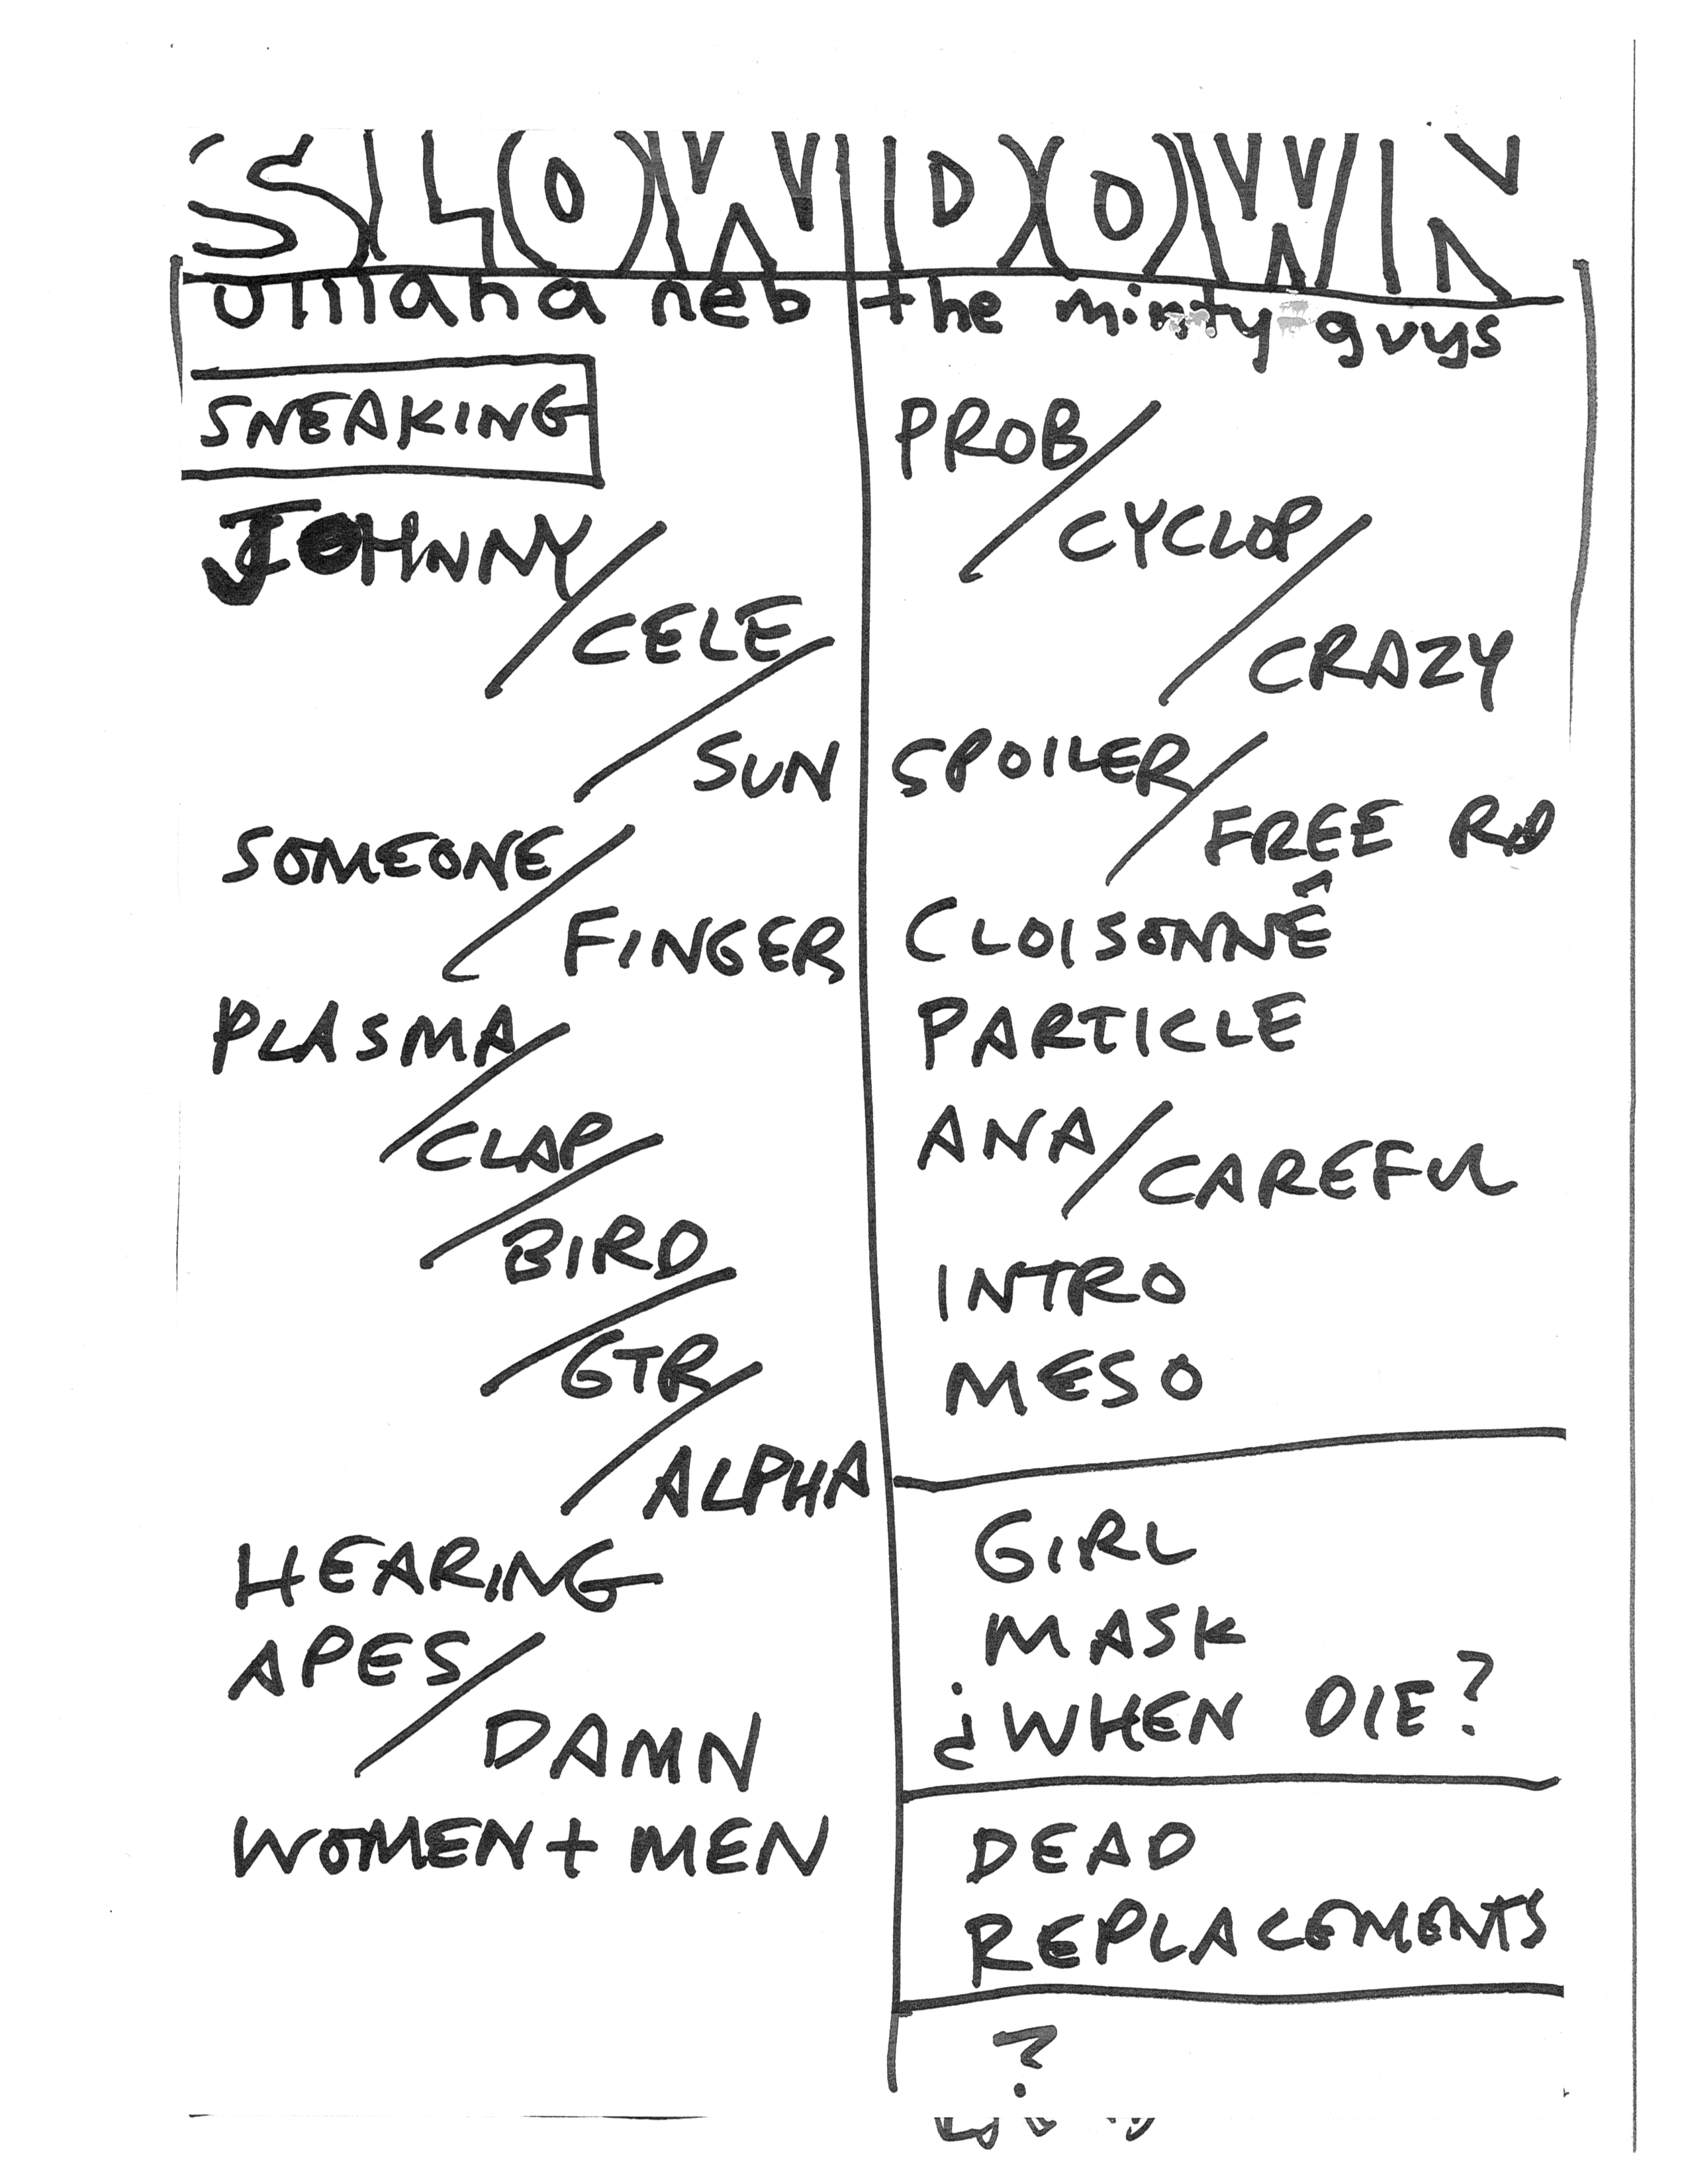 SLOW DOWN
omaha neb the minty guys
SNEAKING
JOHNNY/
CELE/
SUN
SOMEONE/
FINGER
PLASMA/
CLAP/
BIRD/
GTR/
ALPHA
HEARING
APES/
DAMN
WOMEN + MEN
PROB/
CYCLOP/
CRAZY
SPOILER/
FREE
CLOISONNÊ
PARTICLE
ANA/
CAREFUL
INTRO
MESO
GIRL
MASK
¿WHEN DIE?
DEAD
REPLACEMENTS
?